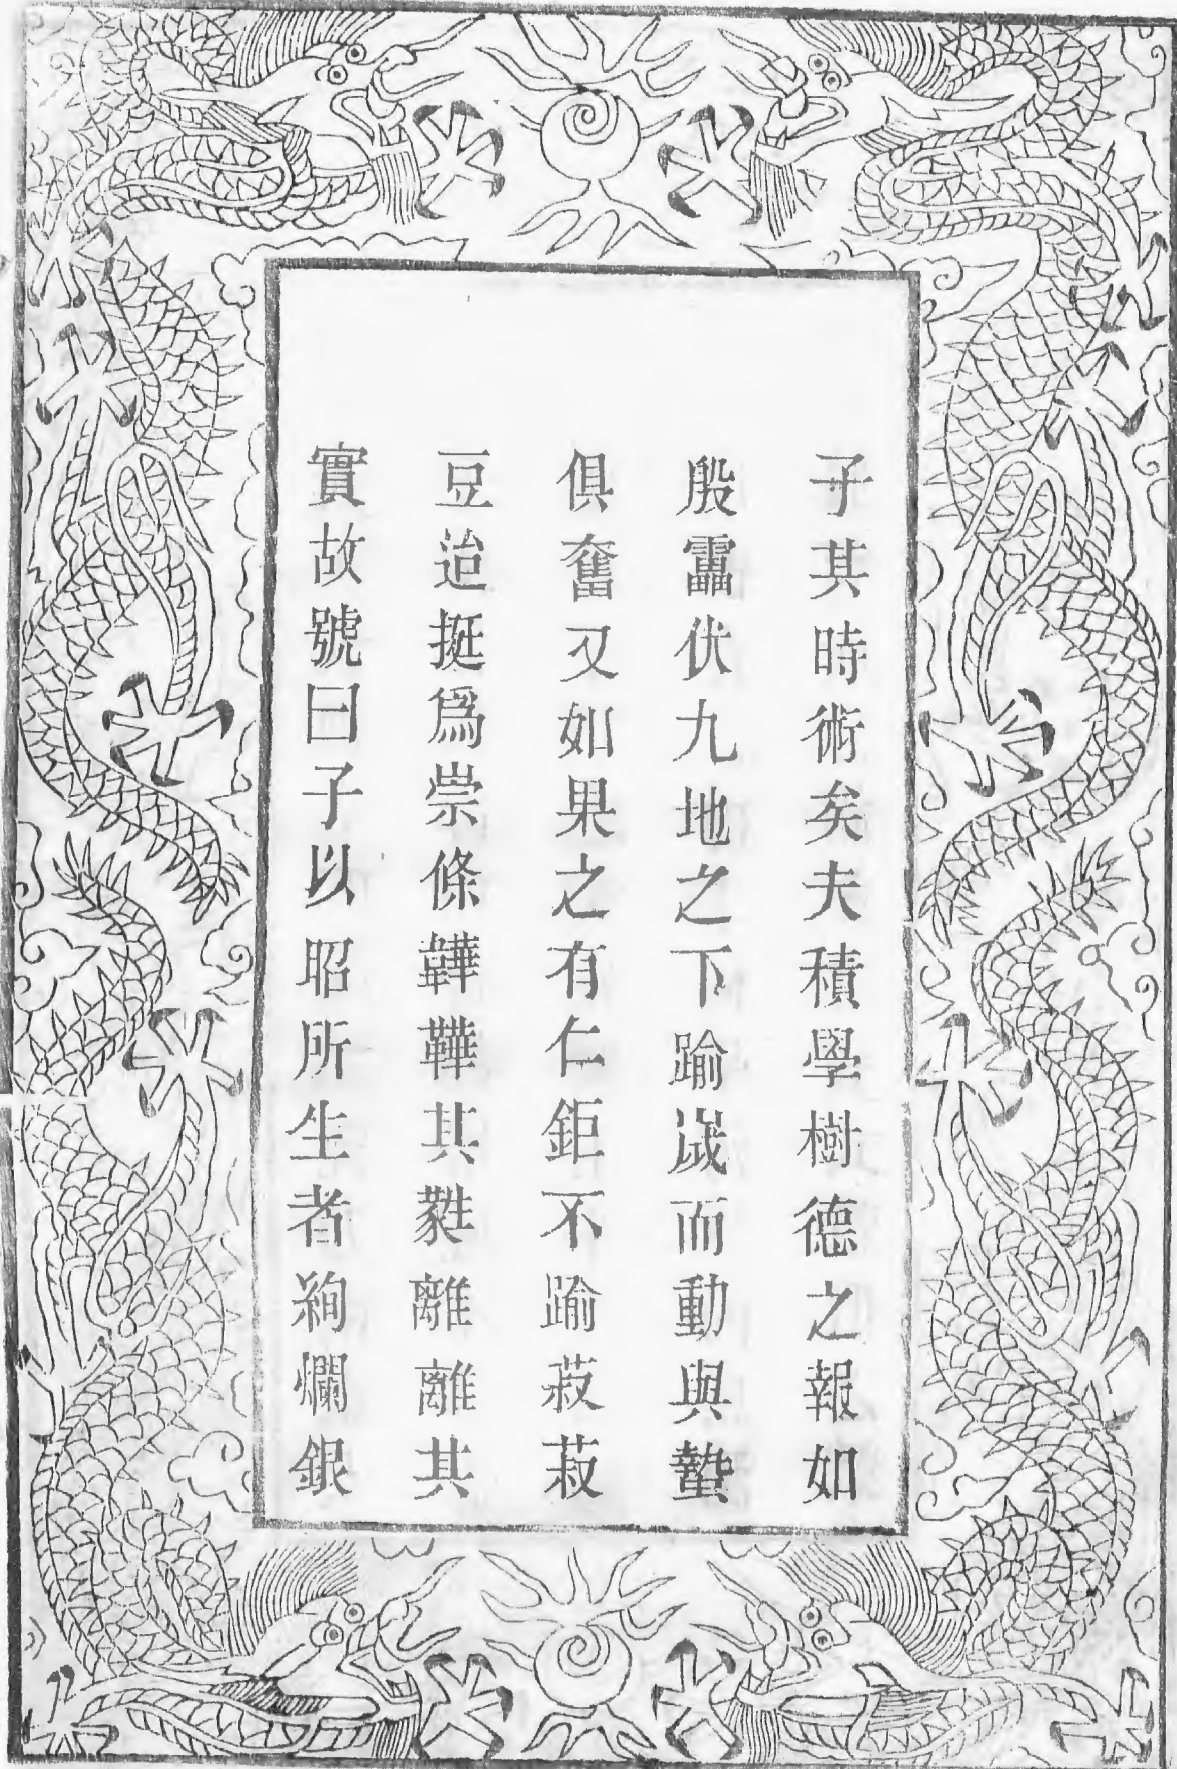 子其時術矣夫積學樹德之報如
殷靁伏九地之下踰嵗而動與蟄
俱奮又如果之有仁鉅不踰菽菽
豆迨挺爲崇條韡韡其蕤離離其
實故號曰子以昭所生者絢爛銀